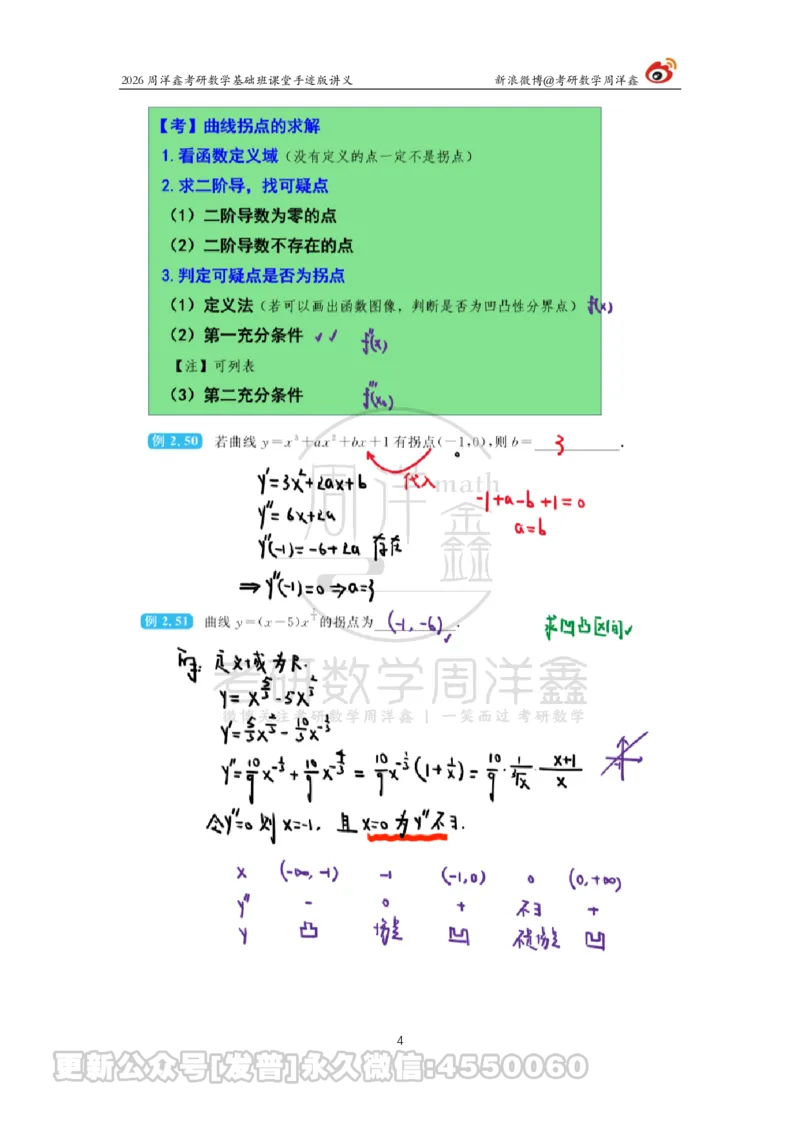 2026 周洋鑫考研数学基础班课堂手迹版讲义 新浪微博@考研数学周洋鑫
【考】曲线拐点的求解
1.看函数定义域（没有定义的点一定不是拐点）
2.求二阶导，找可疑点
（1）二阶导数为零的点
（2）二阶导数不存在的点
3.判定可疑点是否为拐点
（1）定义法（若可以画出函数图像，判断是否为凹凸性分界点） f(x)
（2）第一充分条件 ✓✓ f''(x)
【注】可列表
（3）第二充分条件 f'''(x₀)
例 2.50 若曲线 y=x³+ax²+bx+1 有拐点(-1,0),则 b= 3 .
y'=3x²+2ax+b 代入
-1+a-b+1=0
y''=6x+2a
a=b
y''(-1)=-6+2a 存在
⇒ y''(-1)=0 ⇒ a=3
例 2.51 曲线 y=(x-5)x^{2/3} 的拐点为 (-1,-6) ✓ .
求凹凸区间✓
解: 定义域为R.
y = x^{5/3} - 5x^{2/3}
y' = 5/3 x^{2/3} - 10/3 x^{-1/3}
y'' = 10/9 x^{-1/3} + 10/9 x^{-4/3} = 10/9 x^{-1/3}(1+1/x) = 10/9 · 1/∛x · (x+1)/x
-1
令y''=0 则 x=-1, 且 x=0 为 y''不∃.
x (-∞,-1) -1 (-1,0) 0 (0,+∞)
y'' - 0 + 不∃ +
y 凸 拐点 凹 不是拐点 凹
周洋鑫
math
考研数学周洋鑫
微博关注考研数学周洋鑫 | 一笑而过 考研数学
4
更新公众号[发普]永久微信:4550060